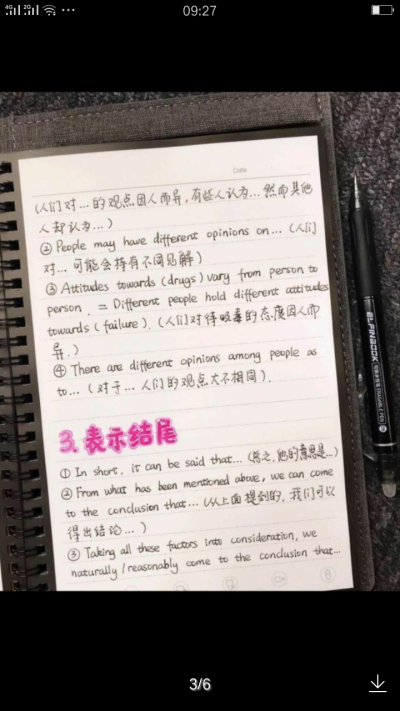 4G 2G 09:27
Date
(人们对...的观点因人而异,有些人认为...然而其他
人却认为...)
② People may have different opinions on... (人们
对...可能会持有不同见解)
③ Attitudes towards (drugs) vary from person to
person. = Different people hold different attitudes
towards (failure). (人们对待吸毒的态度因人而
异.)
④ There are different opinions among people as
to... (对于...人们的观点大不相同).
3.表示结尾
① In short, it can be said that... (总之,他的意思是...)
② From what has been mentioned above, we can come
to the conclusion that... (从上面提到的,我们可以
得出结论...)
③ Taking all these factors into consideration, we
naturally/reasonably come to the conclusion that...
3/6